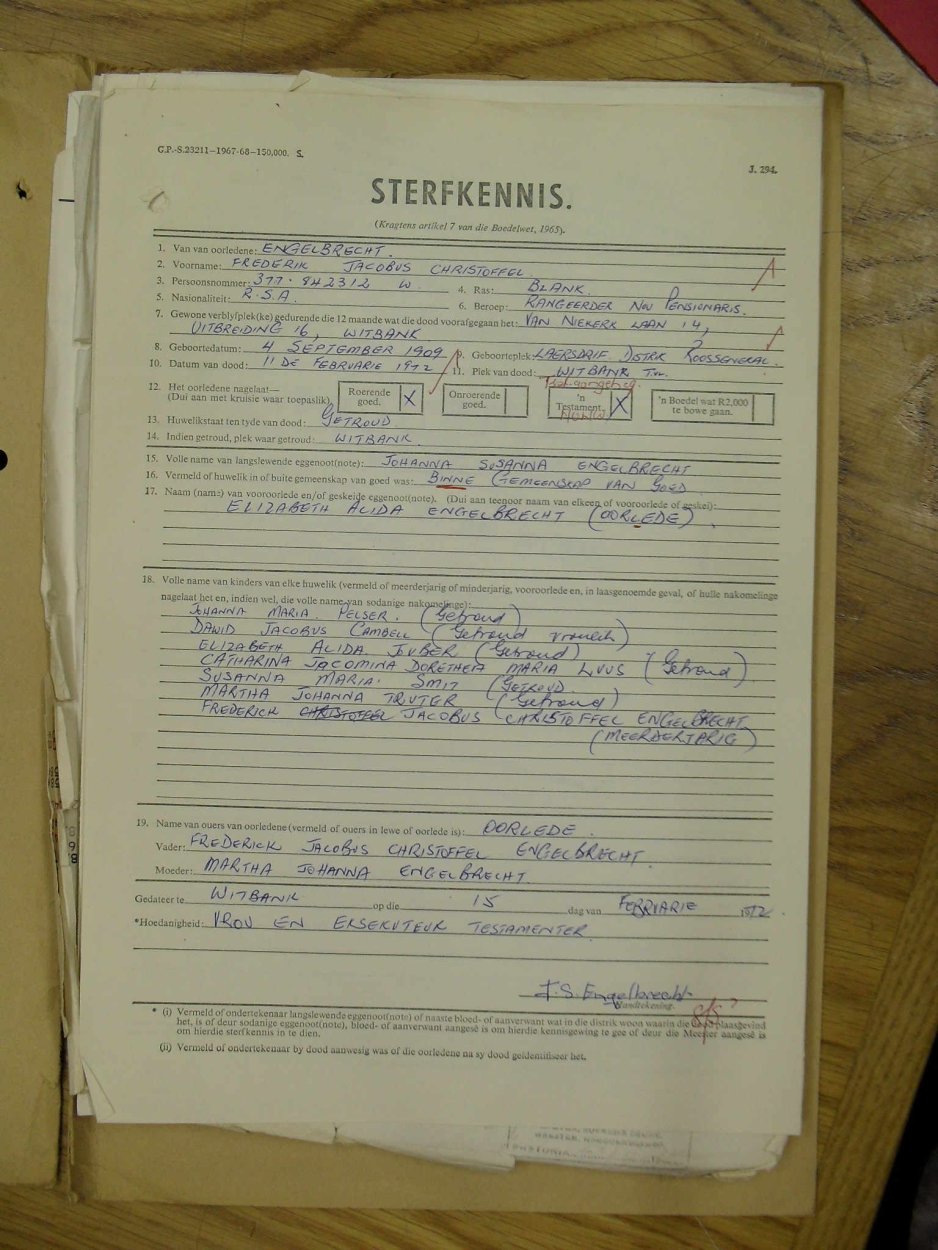 G.P.-S.23211—1967-68—150,000. S.
J. 294.
STERFKENNIS.
(Kragtens artikel 7 van die Boedelwet, 1965).
1. Van van oorledene: ENGELBRECHT.
2. Voorname: FREDERIK JACOBUS CHRISTOFFEL
3. Persoonsnommer: 377·842312 W. 4. Ras: BLANK.
5. Nasionaliteit: R.S.A. 6. Beroep: RANGEERDER NOU PENSIONARIS.
7. Gewone verblyfplek(ke) gedurende die 12 maande wat die dood voorafgegaan het: VAN NIEKERK LAAN 14,
UITBREIDING 16, WITBANK
8. Geboortedatum: 4 SEPTEMBER 1909 9. Geboorteplek: LAERSDRIF DISTRIK ROOSSENEKAL
10. Datum van dood: 11 DE FEBRUARIE 1972 11. Plek van dood: WITBANK TVL.
12. Het oorledene nagelaat—
(Dui aan met kruisie waar toepaslik).
Roerende goed. X
Onroerende goed.
'n Testament. X
'n Boedel wat R2,000 te bowe gaan.
13. Huwelikstaat ten tyde van dood: GETROUD
14. Indien getroud, plek waar getroud: WITBANK.
15. Volle name van langslewende eggenoot(note): JOHANNA SUSANNA ENGELBRECHT
16. Vermeld of huwelik in of buite gemeenskap van goed was: BINNE GEMEENSKAP VAN GOED
17. Naam (name) van vooroorlede en/of geskeide eggenoot(note). (Dui aan teenoor naam van elkeen of vooroorlede of geskei):
ELIZABETH ALIDA ENGELBRECHT (OORLEDE)
18. Volle name van kinders van elke huwelik (vermeld of meerderjarig of minderjarig, vooroorlede en, in laasgenoemde geval, of hulle nakomelinge
nagelaat het en, indien wel, die volle name van sodanige nakomelinge):
JOHANNA MARIA PELSER. (Getroud)
DAWID JACOBUS CAMBELL (Getroud vroulik)
ELIZABETH ALIDA JUBER (Getroud)
CATHARINA JACOMINA DORETHEA MARIA LUUS (Getroud)
SUSANNA MARIA SMIT (GETROUD.
MARTHA JOHANNA TRUTER (Getroud)
FREDERICK CHRISTOFFEL JACOBUS CHRISTOFFEL ENGELBRECHT
(MEERDERJARIG)
19. Name van ouers van oorledene (vermeld of ouers in lewe of oorlede is): OORLEDE.
Vader: FREDERICK JACOBUS CHRISTOFFEL ENGELBRECHT
Moeder: MARTHA JOHANNA ENGELBRECHT
Gedateer te WITBANK op die 15 dag van FEBRUARIE 1972.
*Hoedanigheid: VROU EN EKSEKUTEUR TESTAMENTER
J.S. Engelbrecht
Handtekening.
* (i) Vermeld of ondertekenaar langslewende eggenoot(note) of naaste bloed- of aanverwant wat in die distrik woon waarin die dood plaasgevind
het, is of deur sodanige eggenoot(note), bloed- of aanverwant aangesê is om hierdie kennisgewing te gee of deur die Meester aangesê is
om hierdie sterfkennis in te dien.
(ii) Vermeld of ondertekenaar by dood aanwesig was of die oorledene na sy dood geïdentifiseer het.